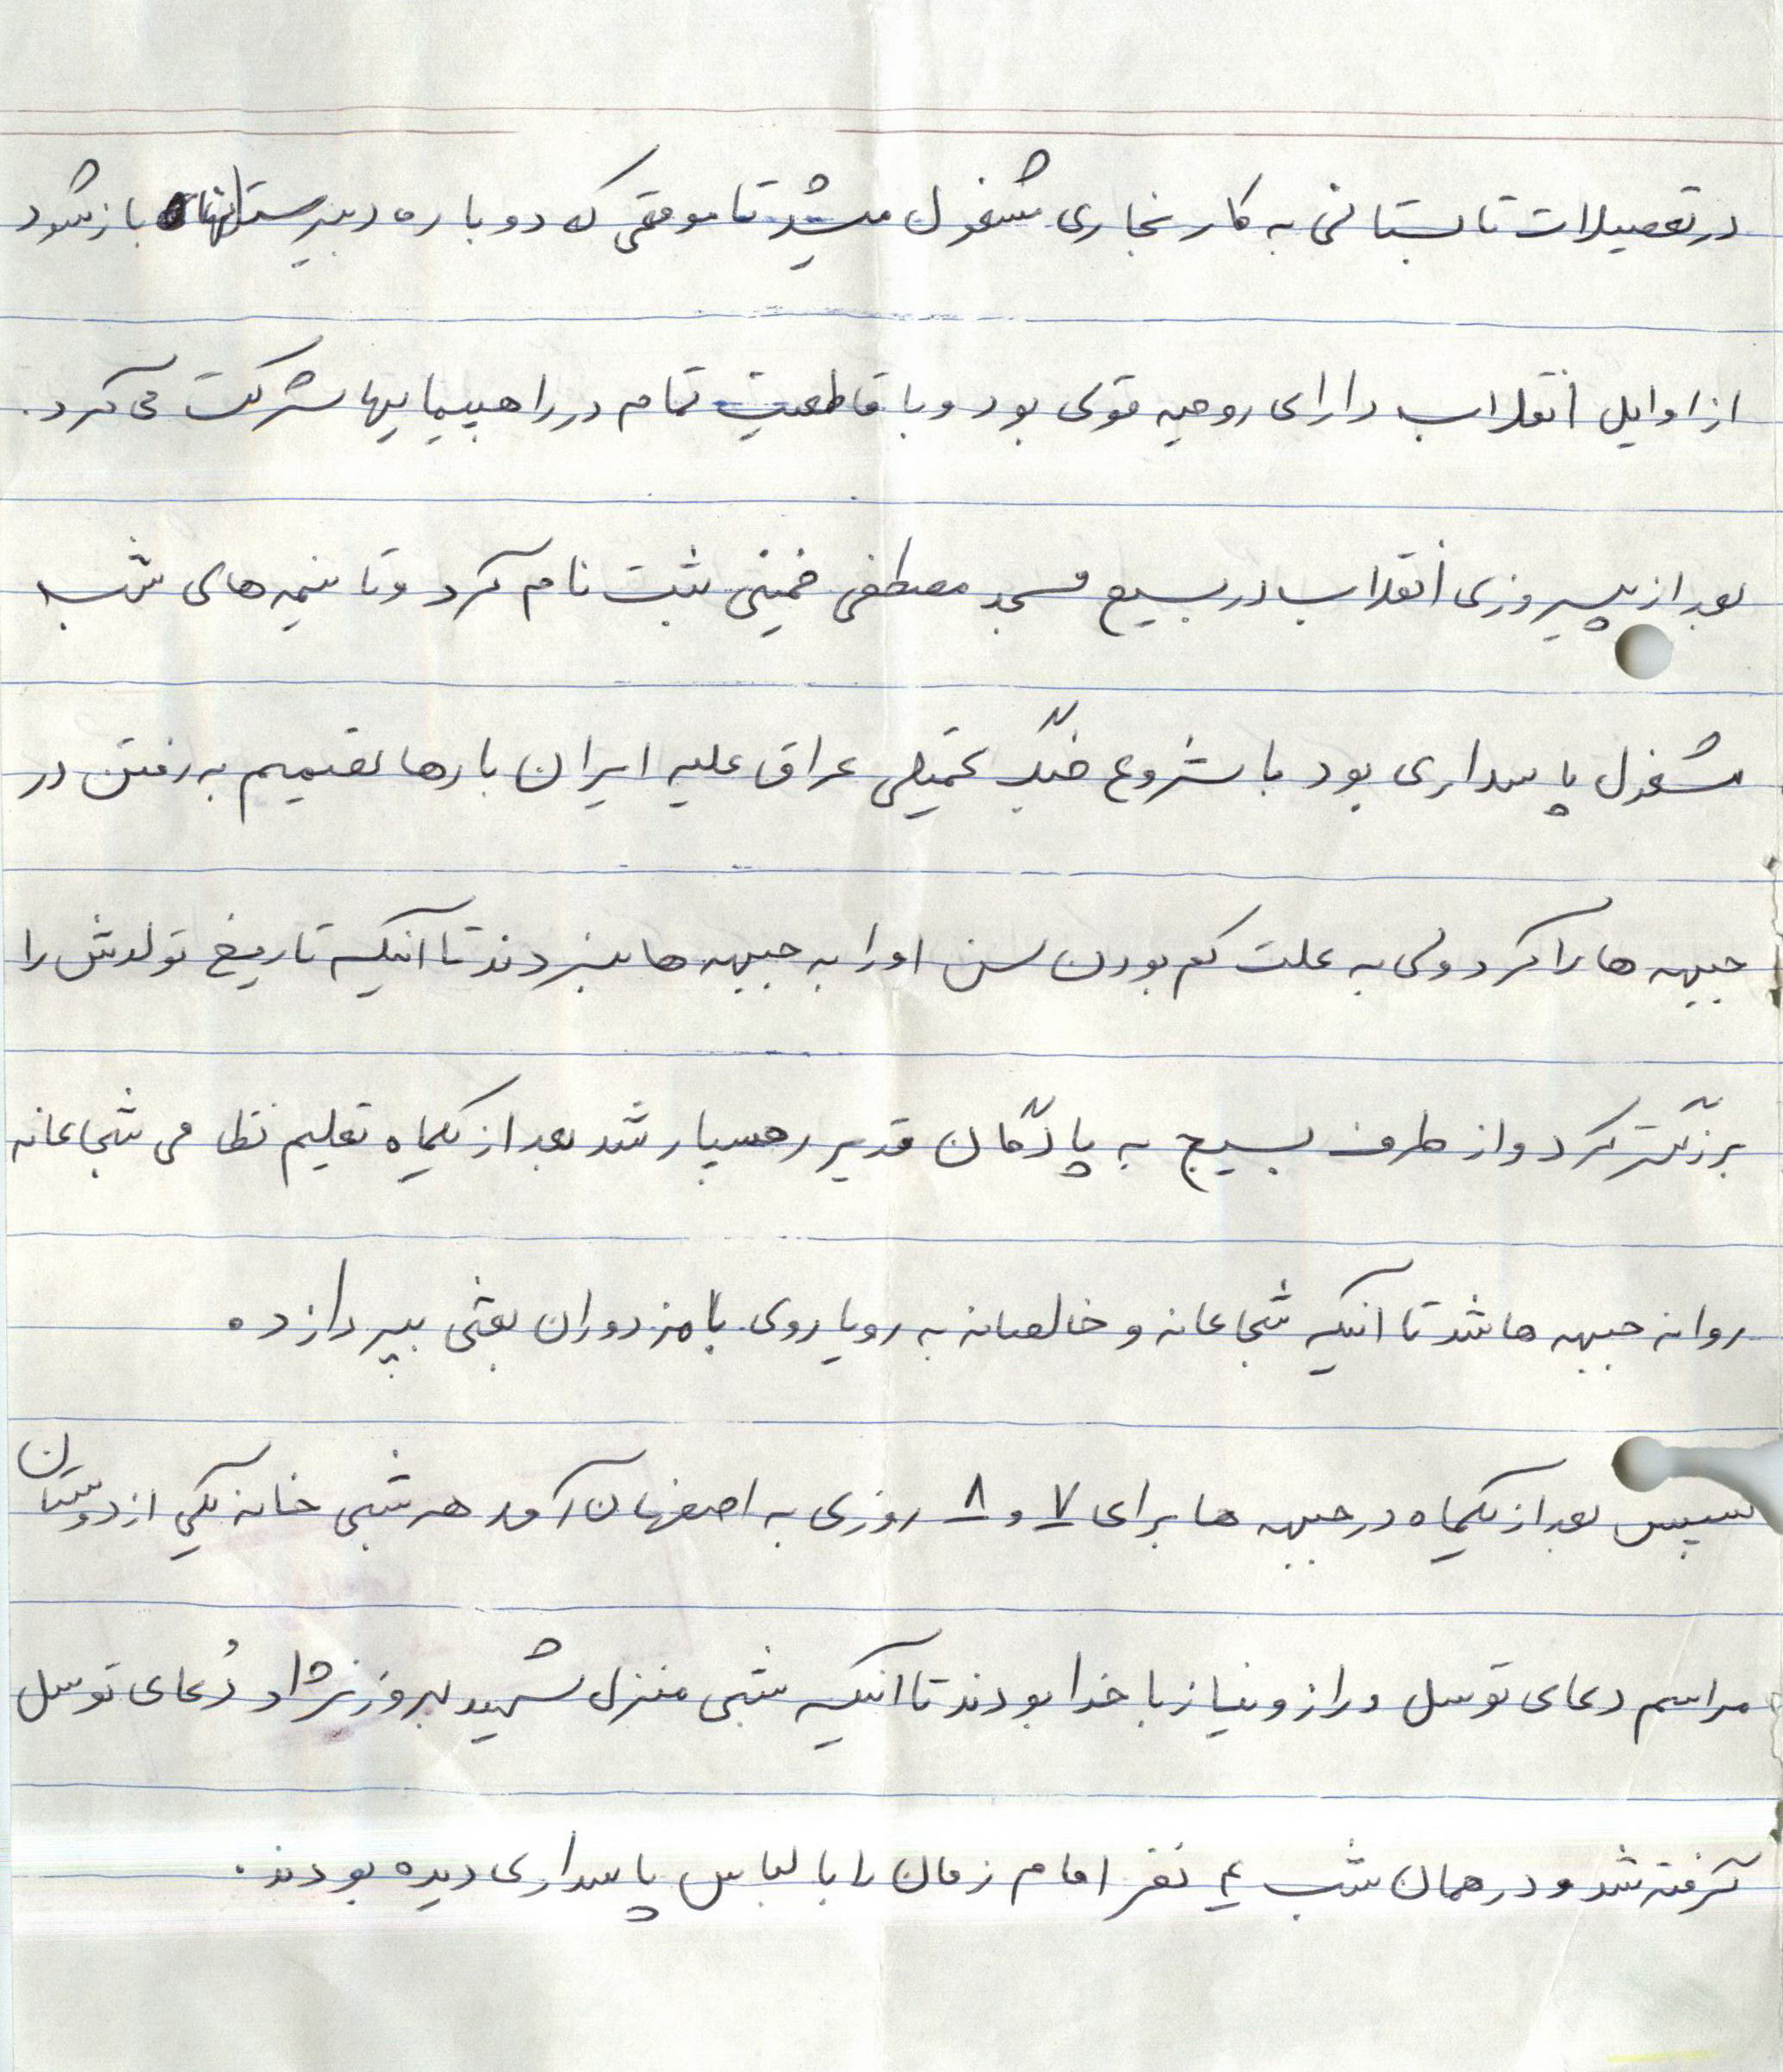 در تعصیلات تابستانی به کار نجاری مشغول میشد تا موقعی که دوباره دبیرستانها باز شود
از اوایل انقلاب دارای روحیه قوی بود و با قاطعیت تمام در راهپیماییها شرکت می کرد.
بعد از پیروزی انقلاب در بسیج مسجد مصطفی خمینی ثبت نام کرد و تا نیمه های شب
مشغول پاسداری بود با شروع جنگ تحمیلی عراق علیه ایران بارها تصمیم به رفتن در
جبهه ها را کرد ولی به علت کم بودن سن او را به جبهه ها نبردند تا آنیکه تاریخ تولدش را
بزرگتر کرد و از طرف بسیج به پادگان قدیر رهسپار شد بعد از یکماه تعلیم نظامی شجاعانه
روانه جبهه ها شد تا آنیکه شجاعانه و خالصانه به رویاروی با مزدوران بعثی بپردازد.
سپس بعد از یکماه در جبهه ها برای ۷ و ۸ روزی به اصفهان آمد هر شبی خانه یکی از دوستان
مراسم دعای توسل و راز و نیاز با خدا بودند تا آنیکه شبی منزل شهید بروزنژاد دُعای توسل
گرفته شد و در همان شب ۴ نفر امام زمان را با لباس پاسداری دیده بودند.